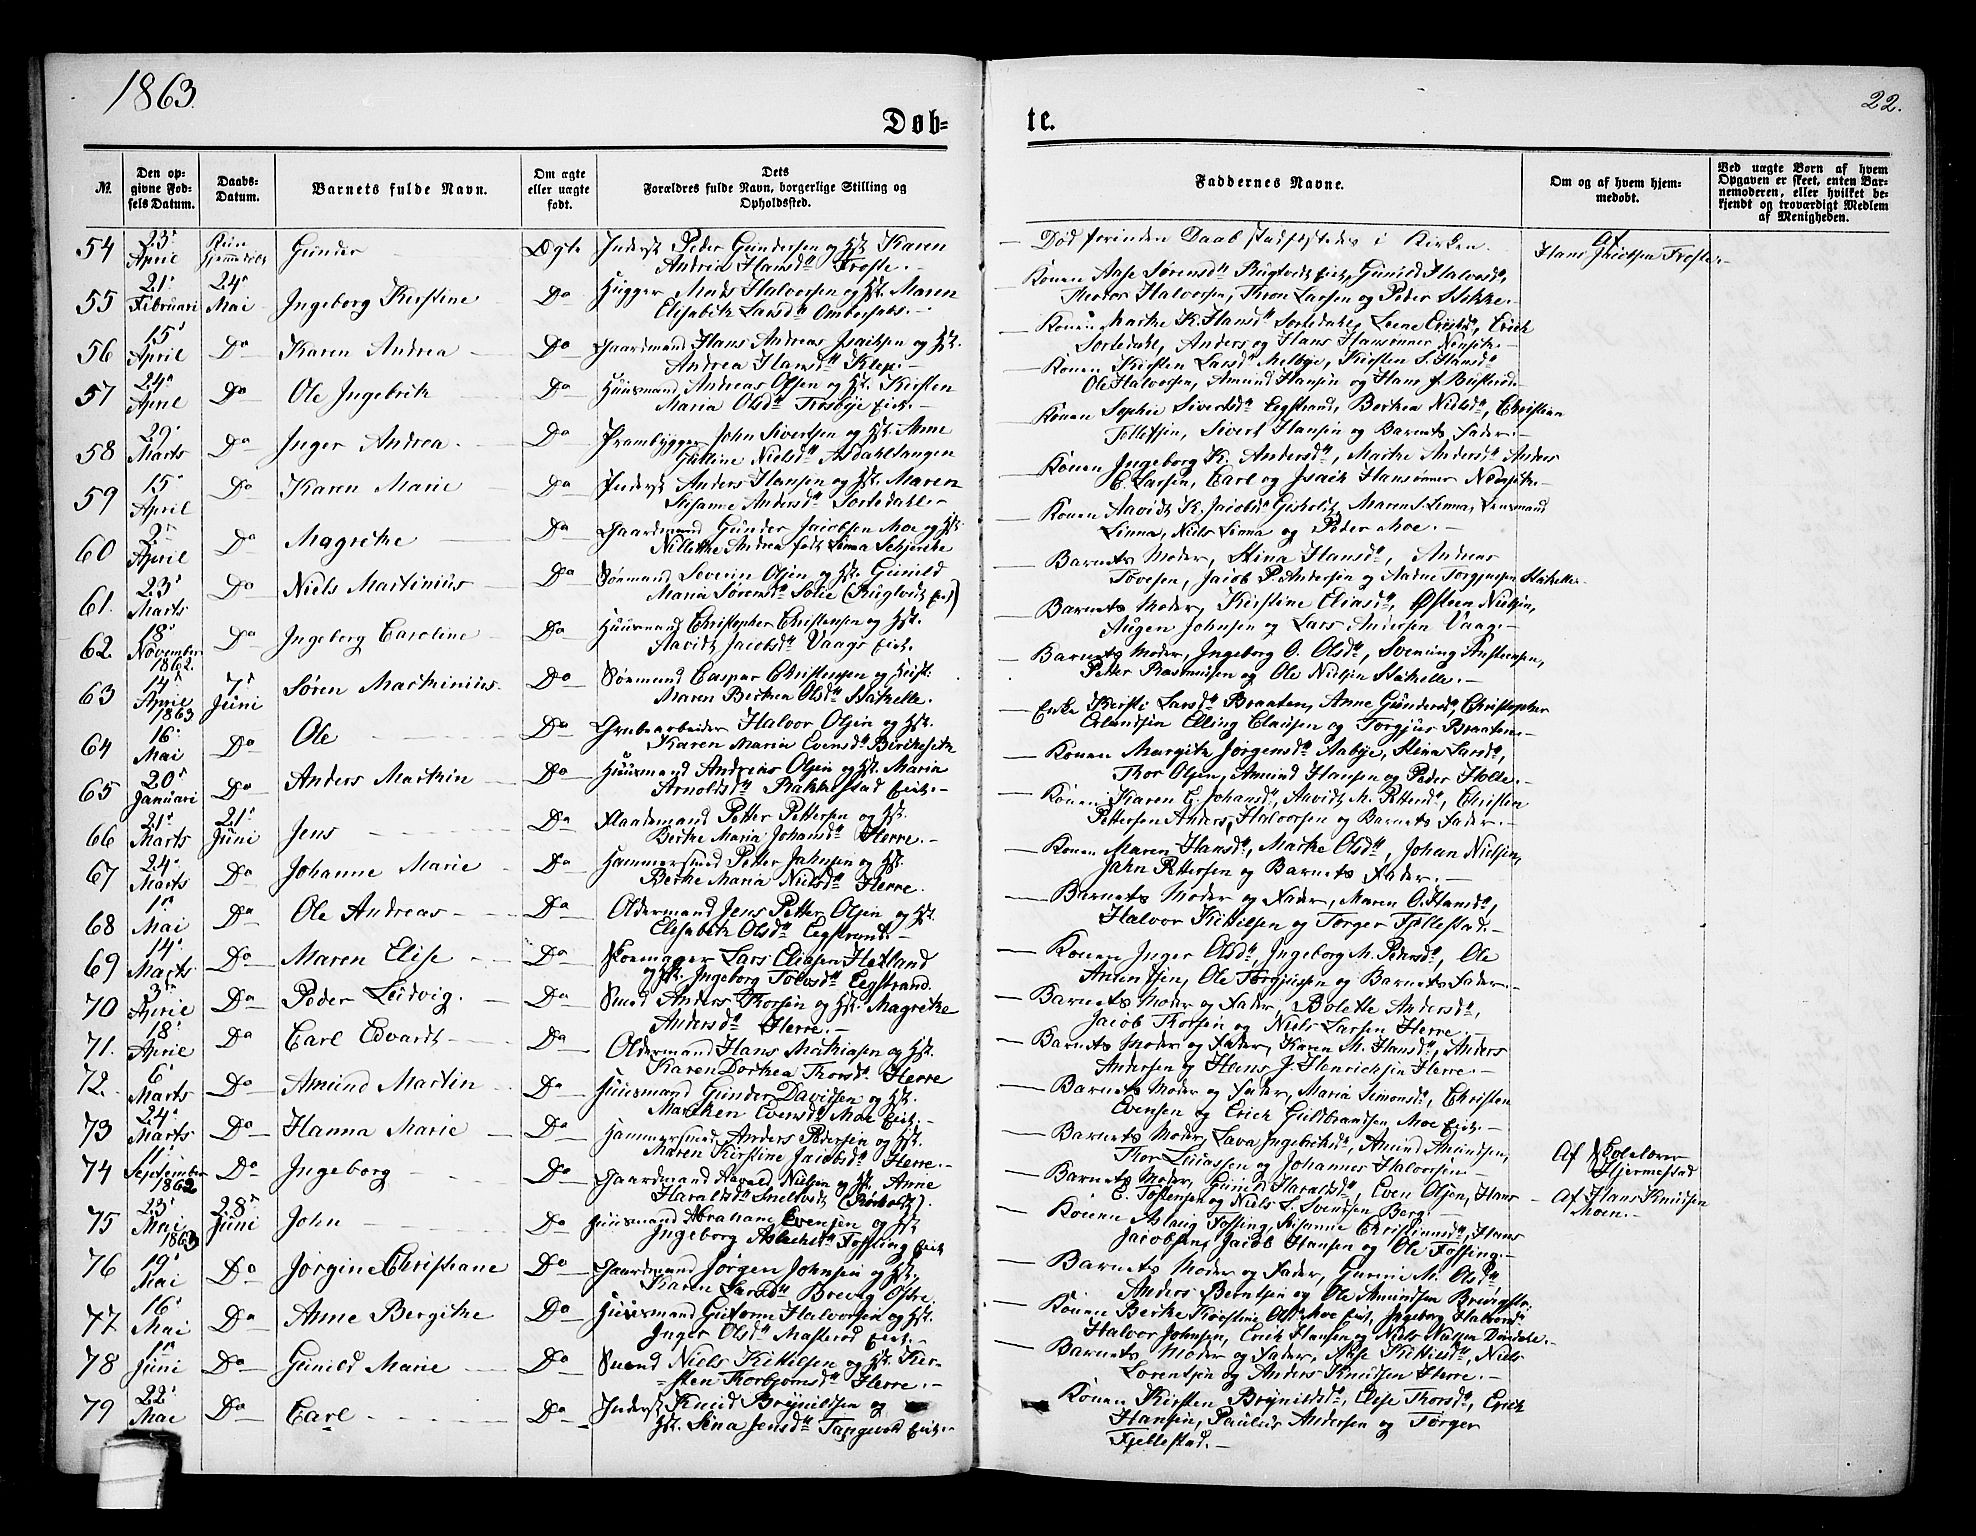 1863.
22.
Døb=
te.
№.
Den op-
givne Fød-
sels Datum.
Daabs-
Datum.
Barnets fulde Navn.
Om ægte
eller uægte
født.
Dets
Forældres fulde Navn, borgerlige Stilling og
Opholdssted.
Faddernes Navne.
Om og af hvem hjem-
medøbt.
Ved uægte Børn af hvem
Opgaven er skeet, enten Bar-
nemoderen, eller hvilket be-
kjendt og troværdigt Medlem
af Menigheden.
54 23' April Gunder Ægte Inderst Peder Gundersen og Hst. Karen
Andrea Hansdtr Froste.
Død forinden Daab stadfæstedes i Kirken.
Af
Hans Froste
55 21' Februari 24' Mai Ingeborg Kirstine Do Hugger Mads Halvorsen og Hst. Maren
Elisabeth Larsdtr Ombersnæs.
Konen Aase Sørensdtr Rugtvedt Eie, Gunild Halvorsdtr,
Halvorsen, Thron Larsen og Peder Stikke.
56 15' April Do Karen Andrea Do Gaardmand Hans Andreas Isaksen og Hst.
Andrea Hansdtr Klep.
Konen Marthe K. Hansdtr Sortedahl, Erich
Sortedahl, Anders og Hans Hansønner
57 24' April Do Ole Ingebrik Do Huusmand Andreas Olsen og Hst. Kirsten
Maria Olsdtr Trosbye Eie.
Konen Kirsten Larsdtr Melbye, Kirsten S. Hansdtr
Ole Halvorsen, Amund Hansen og Hans J.
58 29' Marts Do Inger Andrea Do Prambygger John Sivertsen og Hst. Anne
Nielsdtr Asdahltangen
Konen Sophie Sivertsdtr Eegstrand, Berthea Nielsdtr, Christian
Tollefsen, Sivert Hansen og Barnets Fader.
59 15' April Do Karen Marie Do Inderst Anders Hansen og Hst. Maren
Andersdtr Sortedahl
Konen Ingeborg K. Andersdtr, Marthe Andersdtr Anders
C. Larsen, Carl og Isaik Hansønner
60 2' April Do Magrethe Do Gaardmand Gunder Jacobsen Moe og Hst.
Nillethe Andrea født Linna
Konen K. Jacobsdtr Maren S. Linna, Lensmand
Linna, Niels Linna og Peder Moe.
61. 23' Marts Do Niels Martinius Do Sømand Severin Olsen og Hst. Gunild
Maria Sørensdtr (Rugtvedt Eie)
Barnets Moder, Stina Hansdtr, Andreas
Tovesen, Jacob P. Andersen og Aadne Torgjusen Stathelle.
62. 18' November 1862. Do Ingeborg Caroline Do Huusmand Christopher Christensen og Hst.
Jacobsdtr Vaags Eie.
Barnets Moder, Kirstine Eliasdtr, Østen Nielsen,
Augen Johnsen og Lars Andersen Vaag.
63 14' April 1863 7' Juni Søren Marthinius. Do Sømand Caspar Christensen og Hust.
Maren Berthea Olsdtr Stathelle.
Barnets Moder, Ingeborg O. Olsdtr, Svenning Austensen,
Petter Rasmusen og Ole Nielsen Stathelle.
64 16' Mai Do Ole Do Grubearbeider Halvor Olsen og Hst.
Karen Maria Evensdtr
Enke Larsdtr Braaten, Anne Gundersdtr, Christopher
Erlandsen Elling Clausen og Torgjus Braaten.
65 20' Januari Do Anders Marthin Do Huusmand Andreas Olsen og Hst. Maria
Arnoldsdtr Rakkestad Eie.
Konen Margith Jørgensdtr Aabye, Stina Larsdtr,
Thor Olsen, Amund Hansen og Peder Holte.
66 21' Marts 21' Juni Jens Do Petter Pettersen og Hst.
Berthe Maria Johansdtr Herre.
Konen Karen E. Johansdtr, M. Pettersdtr, Christen
Pettersen Anders, Halvorsen og Barnets Fader.
67 24' Marts Do Johanne Marie Do Hammersmed Petter Jahnsen og Hst.
Berthe Maria Nielsdtr Herre.
Konen Maren Hansdtr, Marthe Olsdtr, Johan Nielsen,
Jahn Pettersen og Barnets Fader.
68 1' Mai Do Ole Andreas Do Oldermand Jens Petter Olsen og Hst.
Elisabeth Olsdtr Eegstrand.
Barnets Moder og Fader, Maren O. Hansdtr,
Halvor Kittilsen og Tørger Fjellestad.
69 14' Marts Do Maren Elise Do Skomager Lars Eliasen Hetland
og Hst. Ingeborg Tolvsdtr Eegstrand.
Konen Inger Olsdtr, Ingeborg M. Pedersdtr, Ole
Amundsen, Ole Torgjusen og Barnets Fader.
70 3' April Do Peder Ludvig. Do Smed Anders Thorsen og Hst. Magrethe
Andersdtr Herre.
Barnets Moder og Fader, Bolette Andersdtr,
Jacob Thorsen og Niels Larsen Herre.
71. 18' April Do Carl Edvardt Do Oldermand Hans Mathiasen og Hst.
Karen Dorthea Thorsdtr Herre
Barnets Moder og Fader, Karen M. Hansdtr, Anders
Andersen og Hans J. Henrichsen Herre.
72. 6' Marts Do Amund Martin Do Huusmand Gunder Davidsen og Hst.
Marthen Evensdtr Moe Eie.
Barnets Moder og Fader, Maria Simonsdtr, Christen
Evensen og Erich Guldbrandsen Moe Eie.
73 24' Marts Do Hanna Marie Do Hammersmed Anders Pedersen og Hst.
Maren Kirstine Jacobsdtr Herre.
Barnets Moder, Lava Ingebrikdtr, Amund Amundsen,
Thor Lucassen og Johannes Halvorsen.
74 11' September 1862 Do Ingeborg Do Gaardmand Aavald Nielsen og Hst. Anne
Haraldsdtr Smeltveds (Rørholt).
Barnets Moder, Gunild Haraldsdtr, Even Olsen, Hans
E. Tostensen og Niels S. Svendsen Berg.
Af Skolelærer
Hjermestad
75 23' Mai 1863 28' Juni John Do Huusmand Abraham Evensen og Hst
Ingeborg Fossing Eie
Konen Aslaug Fossing, Susanne Christiansdtr, Hans
Jacobsen, Jacob Hansen og Ole Fossing.
Af Hans Knudsen
Moen.
76 19' Mai Do Jørgine Christiane Do Gaardmand Jørgen Johnsen og Hst,
Karen Larsdtr Brevig Østre
Barnets Moder og Fader, Gurine M. Olsdtr
Anders Berntsen og Ole Amundsen
77 16' Mai Do Anne Bergithe Do Huusmand Guttorm Halvorsen og Hst.
Inger Olsdtr Masterød Eie.
Konen Berthe Kirstine Olsdtr Moe Eie, Ingeborg Halvorsdtr
Halvor Johnsen, Erich Hansen og Niels Nielsen
78 1' Juni Do Gunild Marie Do Smed Niels Kittilsen og Hst. Kir-
sten Thorbjørnsdtr Herre.
Barnets Moder og Fader, Aase Kittilsdtr, Niels
Lorentsen og Anders Knudsen Herre.
79 22' Mai Do Carl Do Inderst Knud Brynildsen og
Hst. Lina Jensdtr Tangevald Eie.
Konen Kirsten Brynildsdtr, Else Thorsdtr, Erich
Hansen, Paulus Andersen og Tørger
Fjellestad.